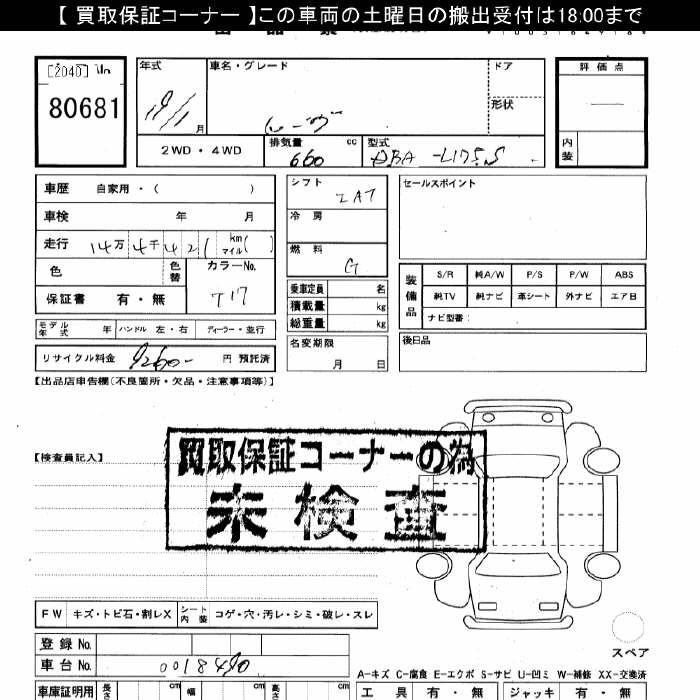 【 買取保証コーナー 】この車両の土曜日の搬出受付は18:00まで
[2040]
80681
年式
車名・グレード
ドア
形状
月
2WD・4WD
排気量 cc
660
型式
DBA-L175S
評価点
内装
車歴 自家用・( )
車検 年 月
走行 14万 4千 4 2 1 km マイル( )
色
色替
カラーNo.
T17
保証書 有・無
モデル年式 年
ハンドル 左・右
ディーラー・並行
リサイクル料金 9260- 円 預託済
シフト
IAT
冷房
燃料
G
乗車定員 名
積載量 kg
総重量 kg
名変期限
月 日
セールスポイント
装備品
S/R 純A/W P/S P/W ABS
純TV 純ナビ 革シート 外ナビ エアB
ナビ型番:
後日品
【出品店申告欄(不良箇所・欠品・注意事項等)】
【検査員記入】
買取保証コーナーの為
未検査
FW キズ・トビ石・割レX
シート内装 コゲ・穴・汚レ・シミ・破レ・スレ
スペア
登録 No.
車台 No. 0018490
A-キズ C-腐食 E-エクボ S-サビ U-凹ミ W-補修 XX-交換済
車庫証明用 長さ cm 幅 cm 高さ cm
工具 有・無 ジャッキ 有・無